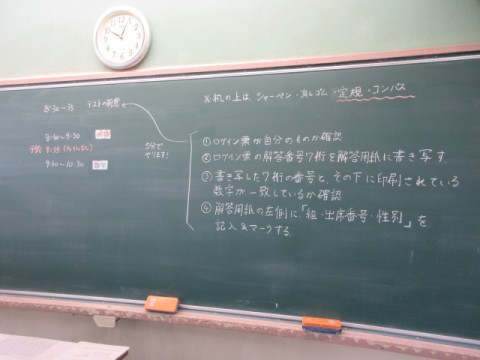 ※机の上は シャーペン・消しゴム・定規・コンパス
テストの前に
5分で
やります！
①ログイン票が自分のものか確認
②ログイン票の解答番号7桁を解答用紙に書き写す
③書き写した7桁の番号と、その下に印刷されている
数字が一致しているか確認
④解答用紙の左側に「組・出席番号・性別」を
記入&マークする
9:30~10:30